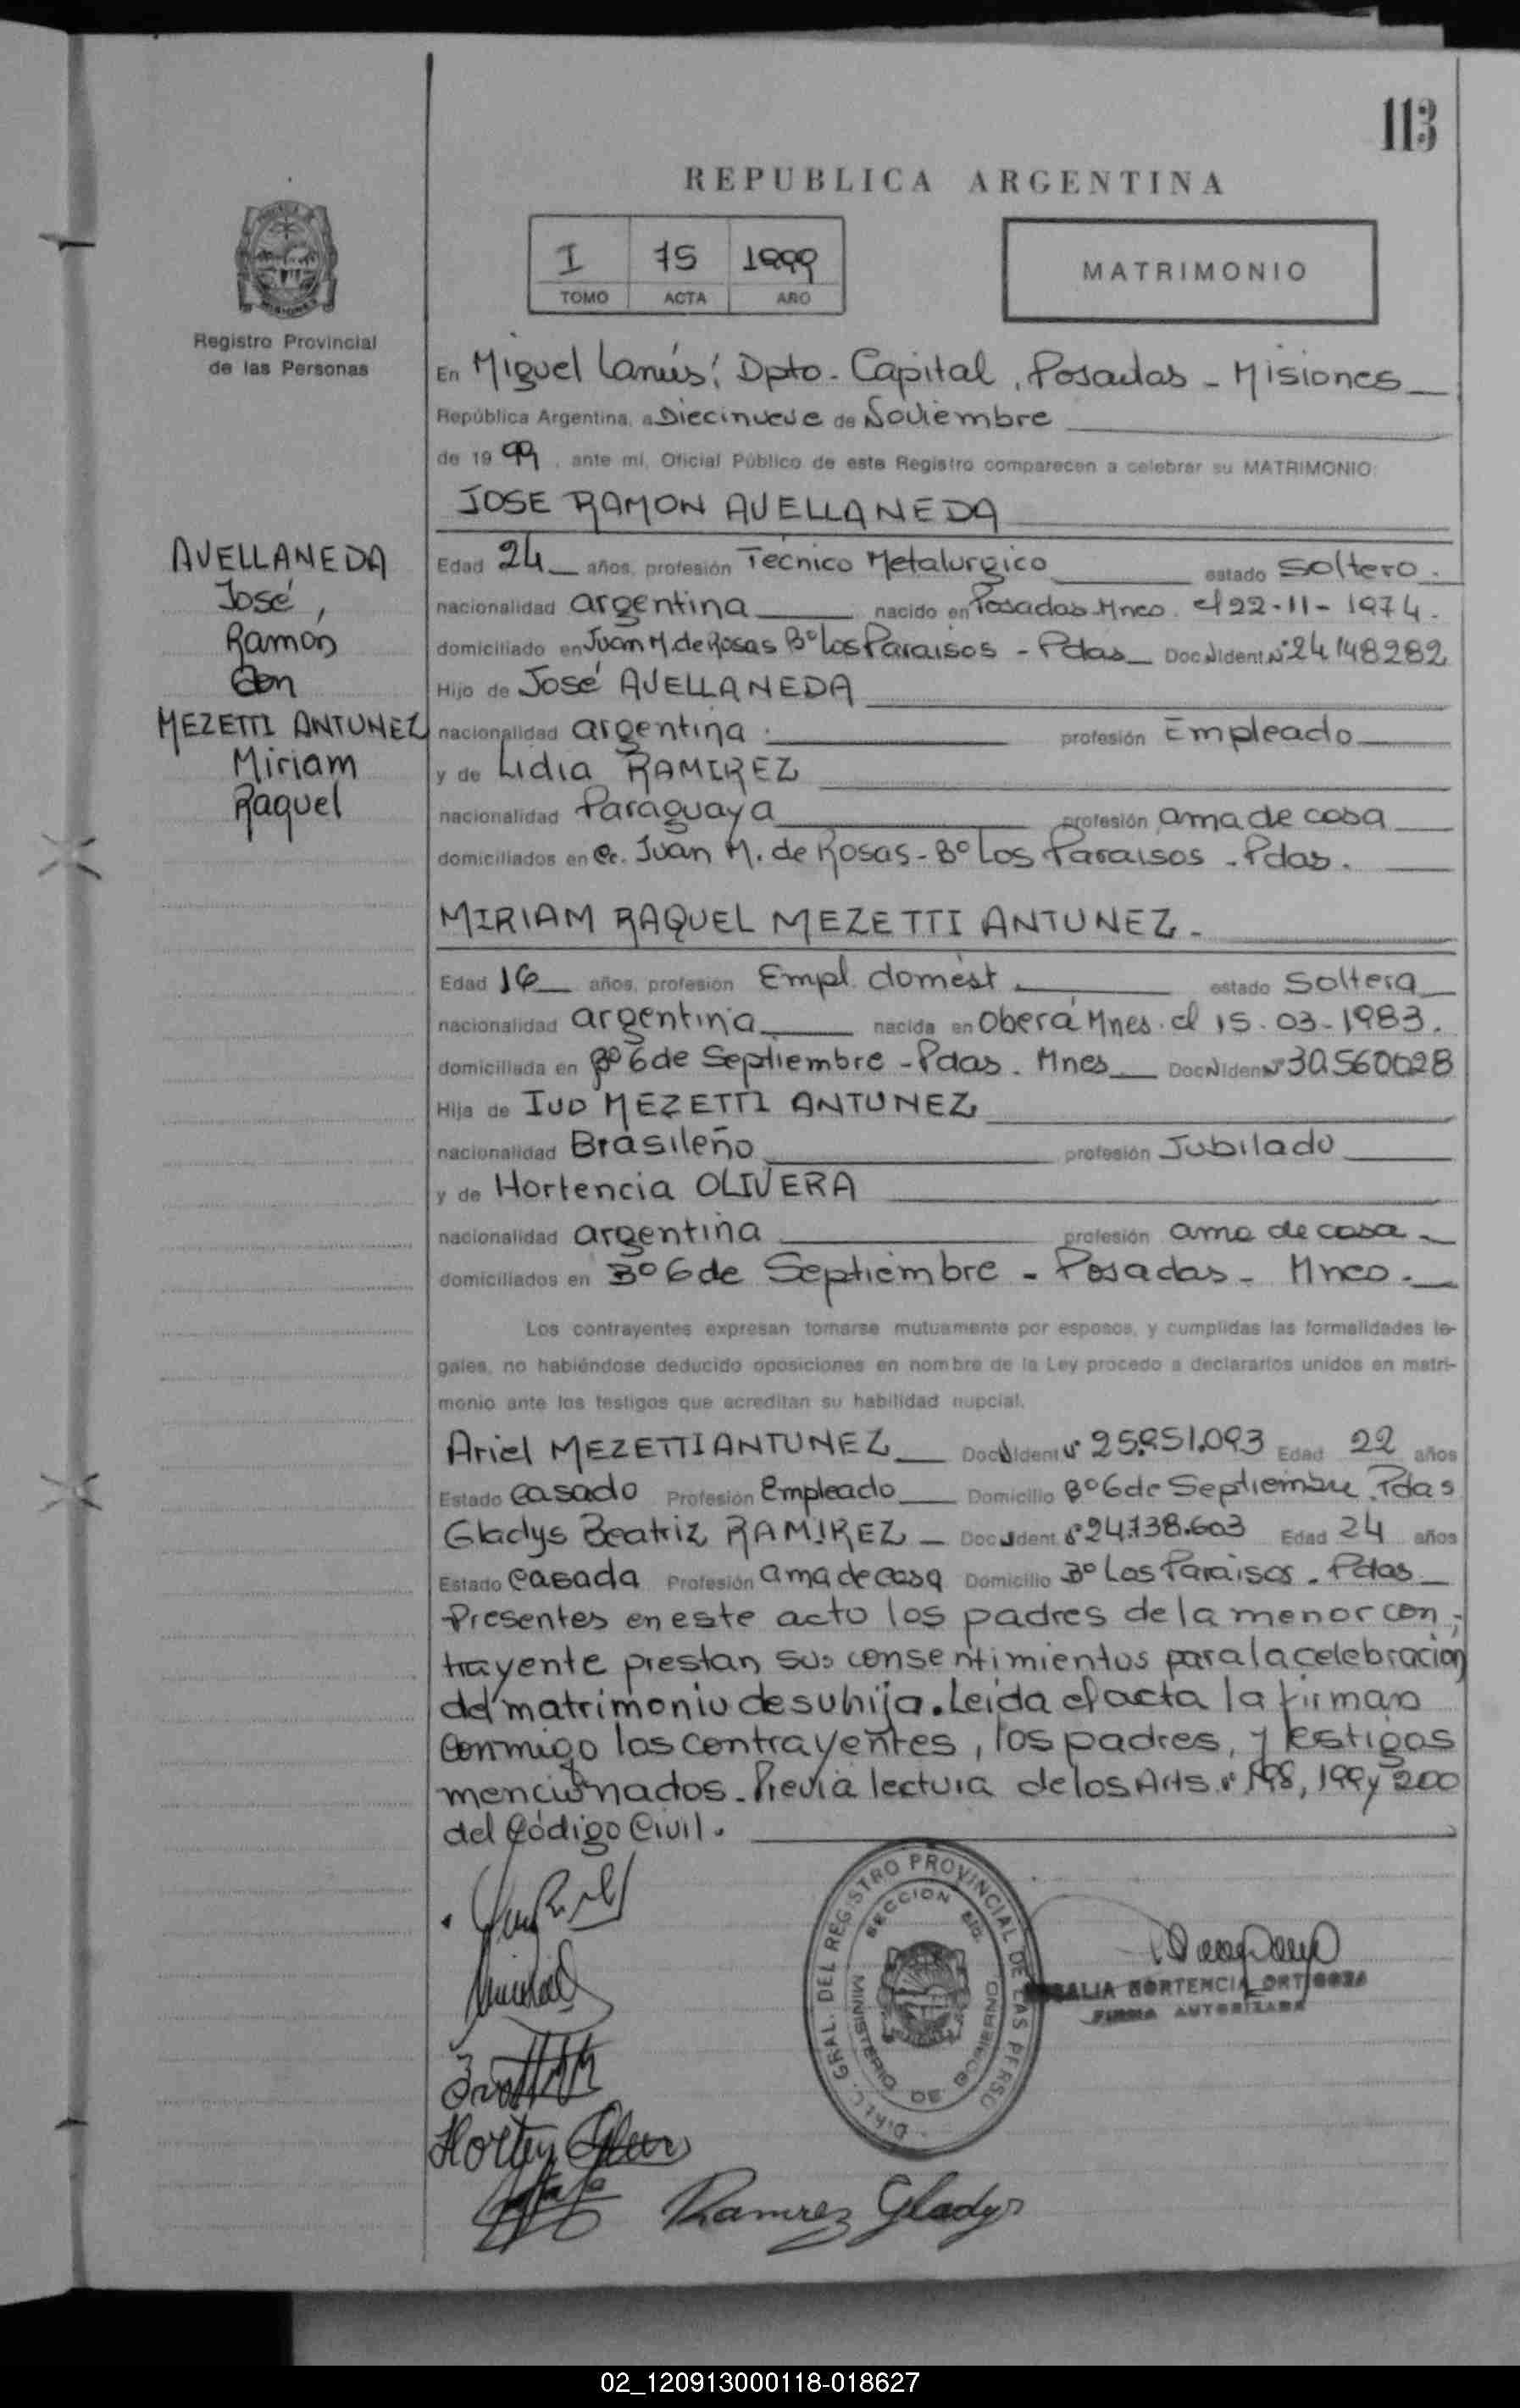 113
REPUBLICA ARGENTINA
I 75 1999
TOMO ACTA AÑO
MATRIMONIO
Registro Provincial
de las Personas
En Miguel Lanús: Dpto - Capital, Posadas - Misiones
República Argentina, a Diecinueve de Noviembre
de 1999, ante mí, Oficial Público de este Registro comparecen a celebrar su MATRIMONIO:
JOSE RAMON AVELLANEDA
AVELLANEDA
José,
Ramón
Con
MEZETTI ANTUNEZ
Miriam
Raquel
Edad 24 años, profesión Técnico Metalurgico estado Soltero.
nacionalidad argentina nacido en Posadas Mnes. el 22-11-1974.
domiciliado en Juan M. de Rosas Bº Los Paraisos - Pdas Doc N Ident Nº 24148282
Hijo de José AVELLANEDA
nacionalidad argentina. profesión Empleado
y de Lidia RAMIREZ
nacionalidad Paraguaya profesión ama de casa
domiciliados en Cc. Juan M. de Rosas - Bº Los Paraisos - Pdas.
MIRIAM RAQUEL MEZETTI ANTUNEZ.
Edad 16 años, profesión Empl. domést estado Soltera
nacionalidad argentina nacida en Oberá Mnes. el 15-03-1983.
domiciliada en Bº 6 de Septiembre - Pdas. Mnes Doc N Ident Nº 30560028
Hija de IVO MEZETTI ANTUNEZ
nacionalidad Brasileño profesión Jubilado
y de Hortencia OLIVERA
nacionalidad argentina profesión ama de casa
domiciliados en Bº 6 de Septiembre - Posadas - Mnes.
Los contrayentes expresan tomarse mutuamente por esposos, y cumplidas las formalidades le-
gales, no habiéndose deducido oposiciones en nombre de la Ley procedo a declararlos unidos en matri-
monio ante los testigos que acreditan su habilidad nupcial.
Ariel MEZETTI ANTUNEZ Doc N Ident Nº 25.951.093 Edad 22 años
Estado Casado Profesión Empleado Domicilio Bº 6 de Septiembre. Pdas
Gladys Beatriz RAMIREZ - Doc N Ident Nº 24.738.603 Edad 24 años
Estado Casada Profesión ama de casa Domicilio Bº Los Paraisos - Pdas
Presentes en este acto los padres de la menor con-
trayente prestan sus consentimientos para la celebracion
del matrimonio de su hija. Leida el acta la firman
Conmigo los contrayentes, los padres, y testigos
mencionados. Previa lectura de los Arts. Nº 198, 199 y 200
del Código Civil.
DIREC. GRAL. DEL REGISTRO PROVINCIAL DE LAS PERSO
SECCION
MINISTERIO DE GOBIERNO
HORTENCIA ORTIGOZA
FIRMA AUTORIZADA
Ramirez Gladys
02_120913000118-018627